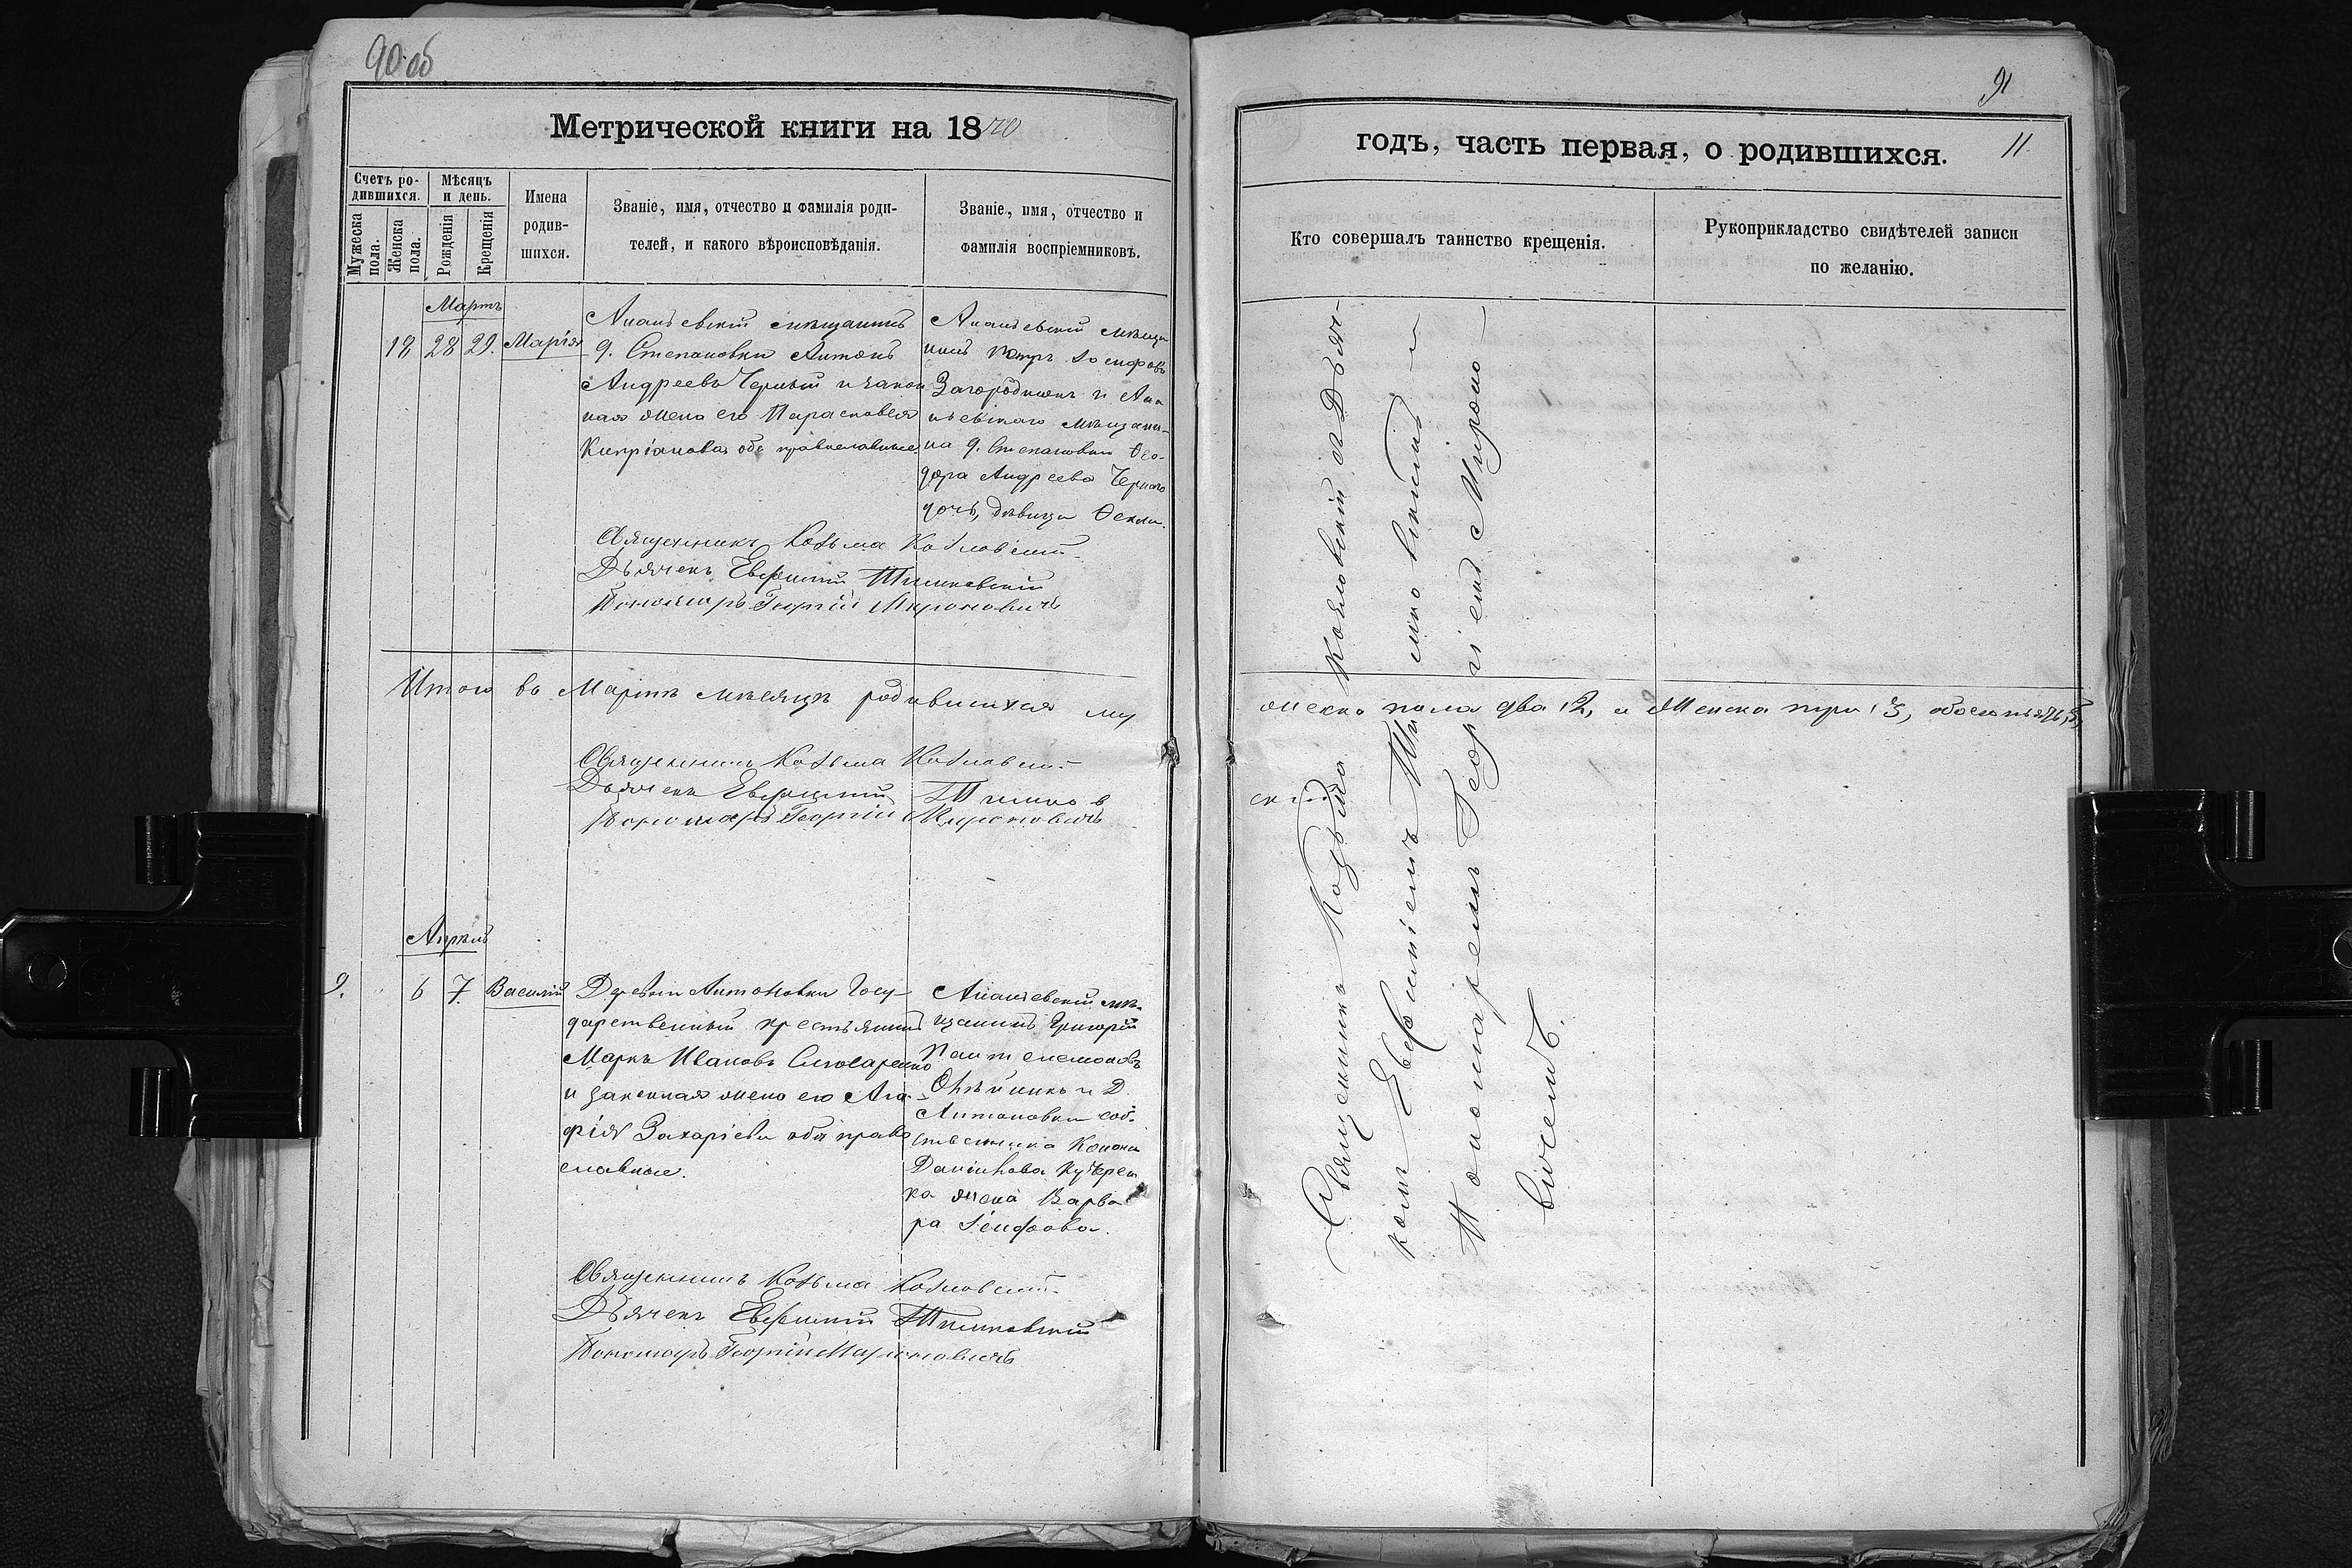 90 об
Метрической книги на 1870
Счетъ ро-
дившихся.
Мужеска
пола.
Женска
пола.
Мѣсяцъ
и день.
Рожденія
Крещенія
Имена
родив-
шихся.
Званіе, имя, отчество и фамилія роди-
телей, и какого вѣроисповѣданія.
Званіе, имя, отчество и
фамилія воспріемниковъ.
Мартъ
18 28 29. Марія
Ананьевскій мѣщанинъ
д. Степановки Антонъ
Андреевъ Черный и закон
ная жена его Парасковея
Кипріанова, оба православные.
Ананьевскій мѣща
нинъ Петръ Іосифовъ
Загороднюкъ и Ана
ньевскаго мѣщани-
на д. Степановки Ѳео-
дора Андреева Чернаго
дочь, дѣвица Ѳекла.
Священникъ Козьма Козловскій
Дьячекъ Евфимій Тимковскій
Пономарь Георгій Мироновичъ
Итого въ Мартѣ мѣсяцѣ родившихся му
Священникъ Козьма Козловскій
Дьячекъ Евфимій Тимков
Пономарь Георгій Мироновичъ
Апрѣль
9. 6 7. Василій
Деревни Антоновки Госу-
дарственный крестьянинъ
Маркъ Ивановъ Слюсаренко
и законная жена его Ага-
фія Захаріева оба право
славные.
Ананьевскій мѣ-
щанинъ Григорій
Пантелемоновъ
Олѣйникъ и Д.
Антоновки соб-
ственника Конона
Даніилова Кучерен
ка жена Варва
ра Іосифова.
Священникъ Козьма Козловскій
Дьячекъ Евфимій Тимковскій
Пономарь Георгій Мироновичъ
91
годъ, часть первая, о родившихся. 11
Кто совершалъ таинство крещенія.
Рукоприкладство свидѣтелей записи
по желанію.
Священникъ Козьма Козловскій съ Дьяч-
комъ Евфиміемъ Тимковскимъ и
Пономаремъ Георгіемъ Мироно-
вичемъ.
жеска пола два 2, и Женска три 3, обоего пять 5,
скій